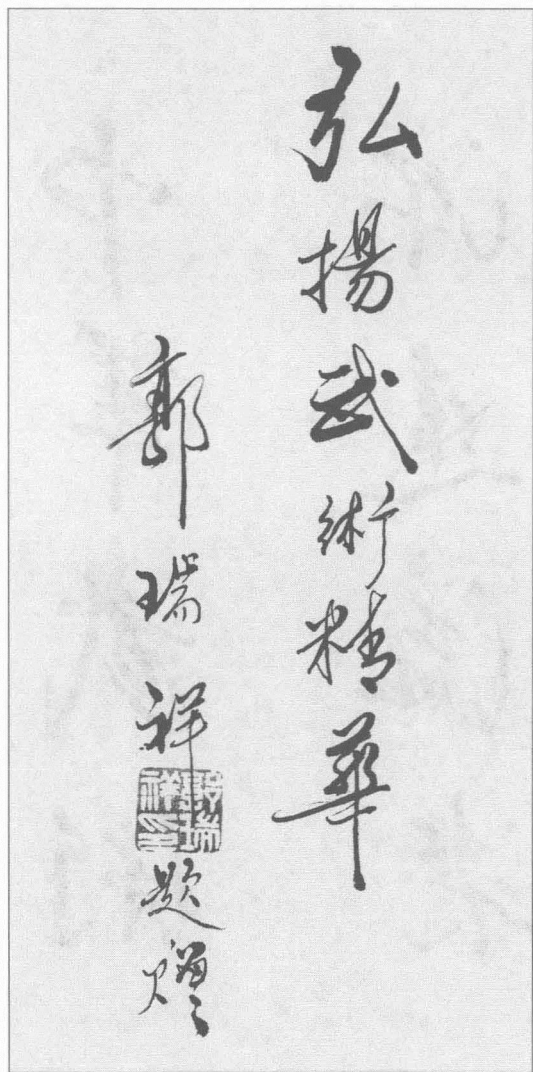 弘揚武術精華
郭瑞祥題贈
郭瑞祥印